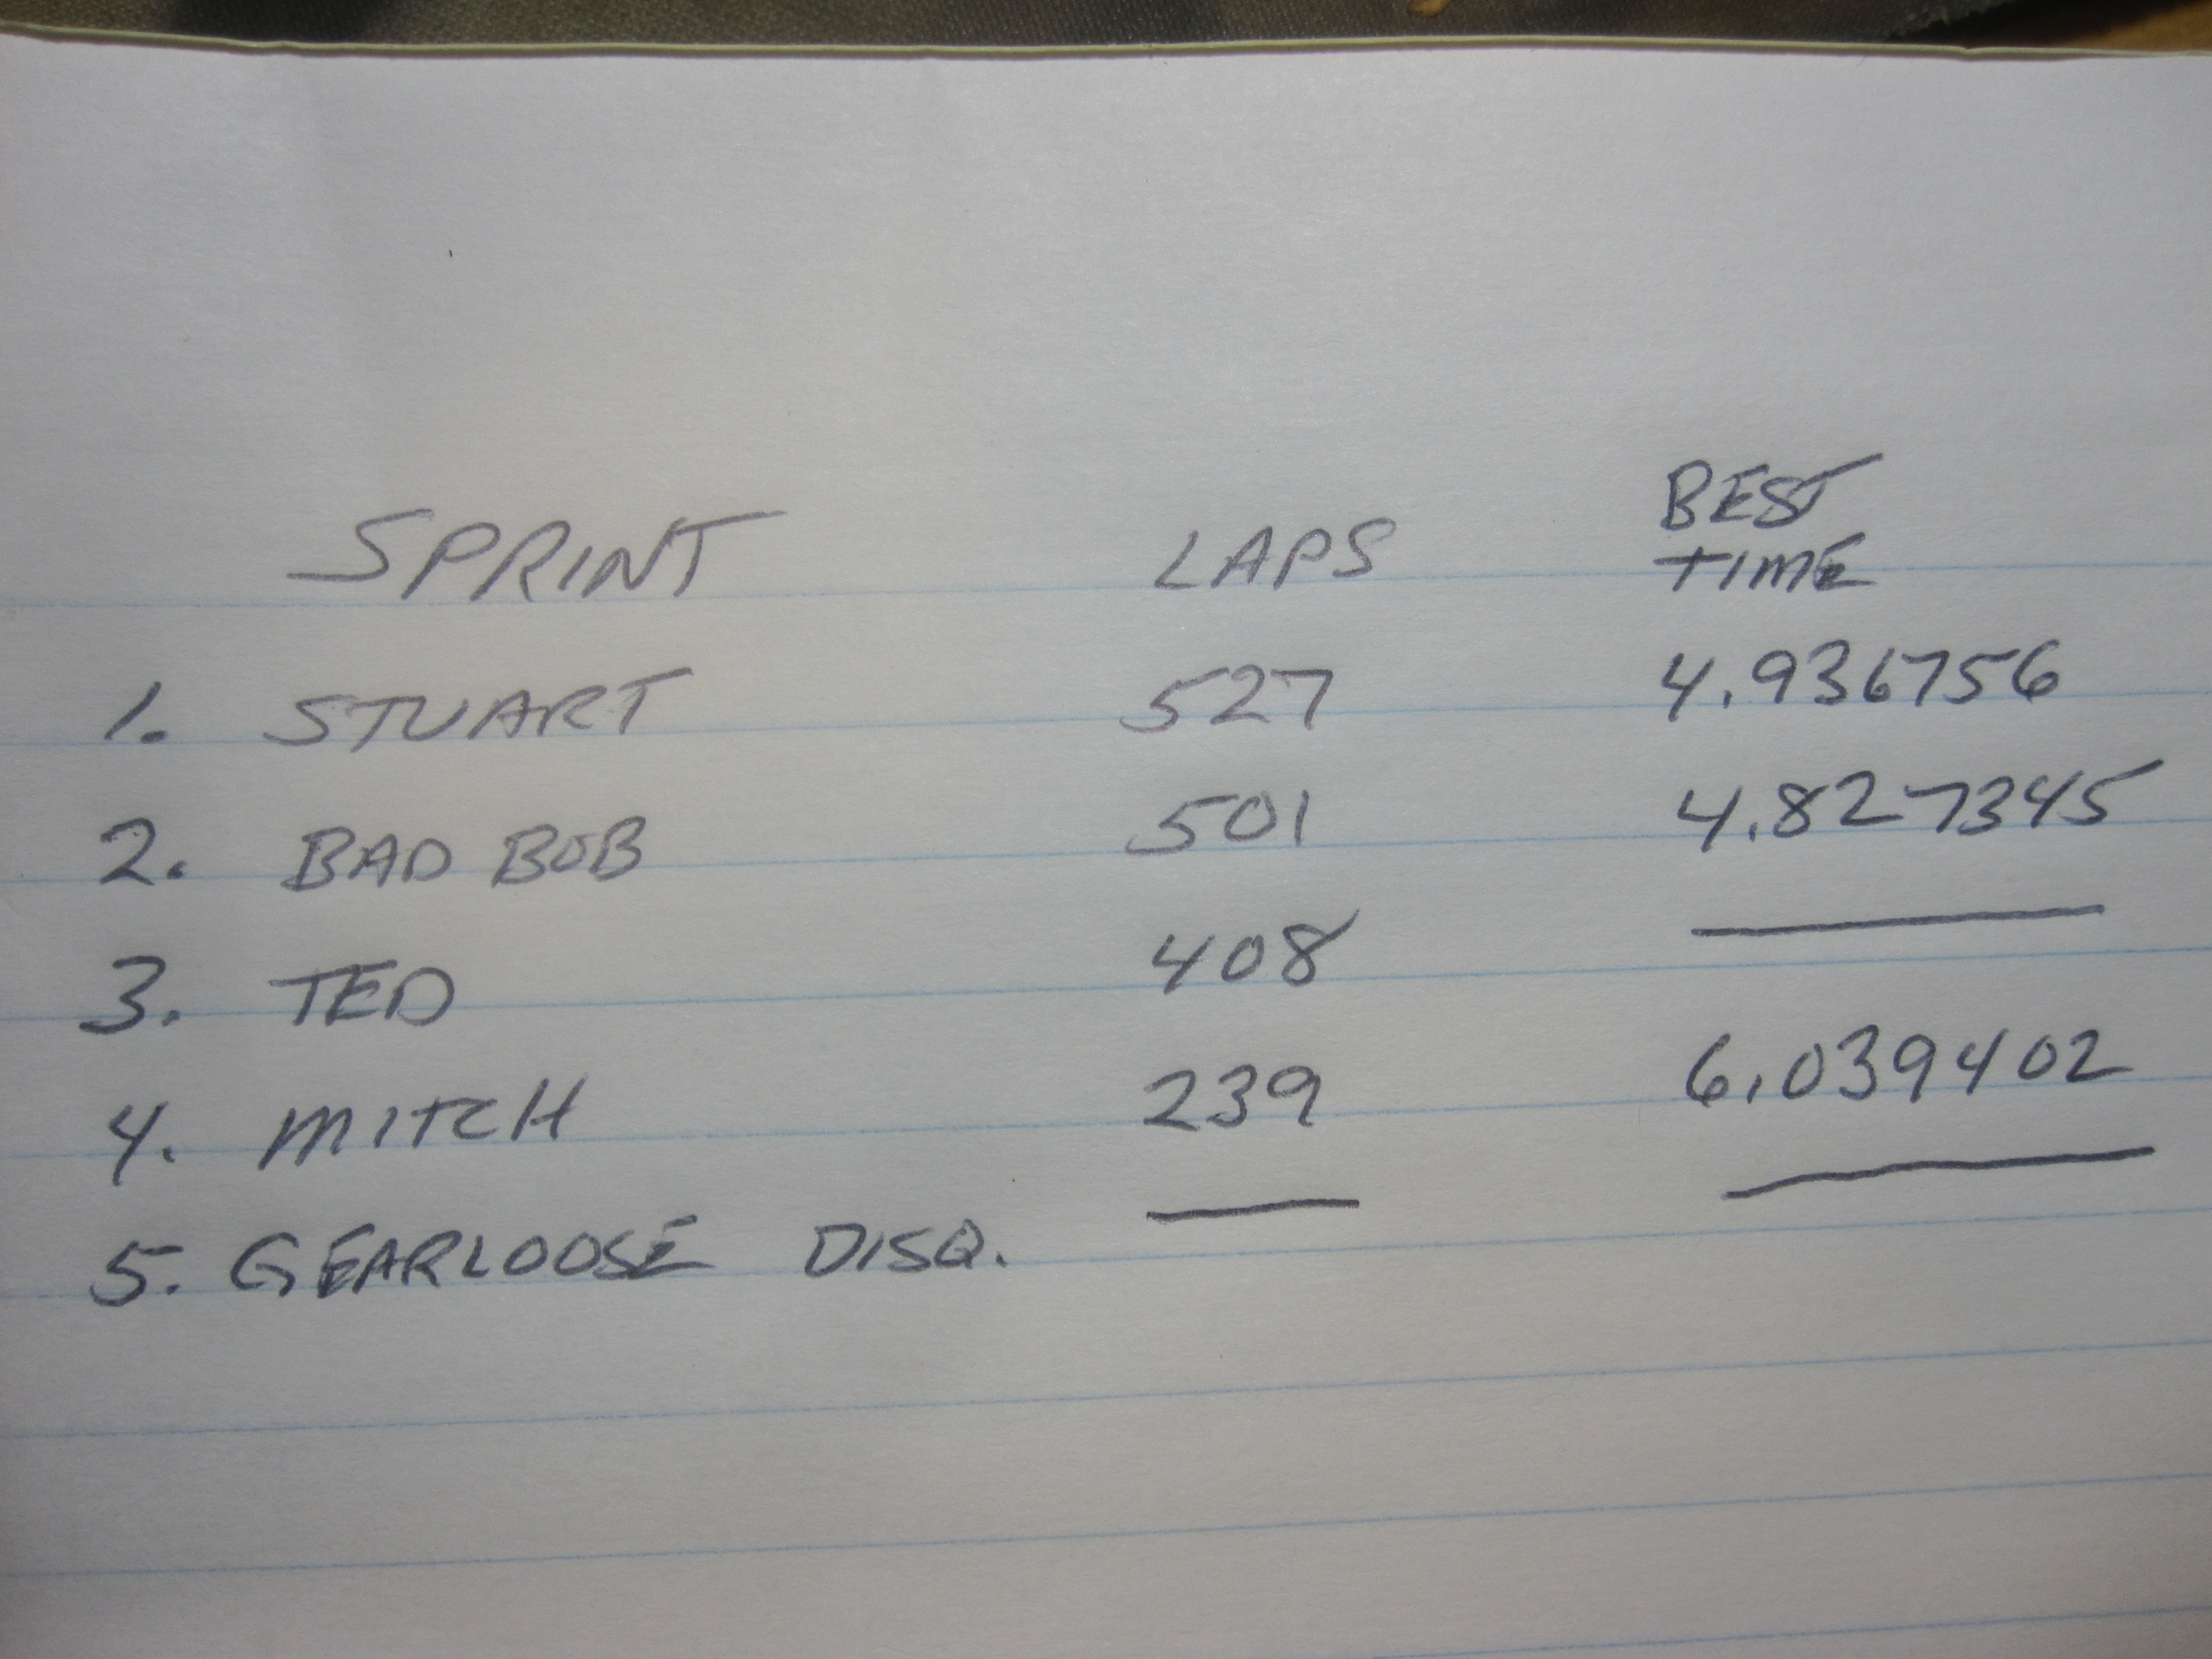 SPRINT LAPS BEST TIME
1. STUART 527 4.936756
2. BAD BOB 501 4.827345
3. TED 408 —
4. MITCH 239 6.039402
5. GEARLOOSE DISQ. — —